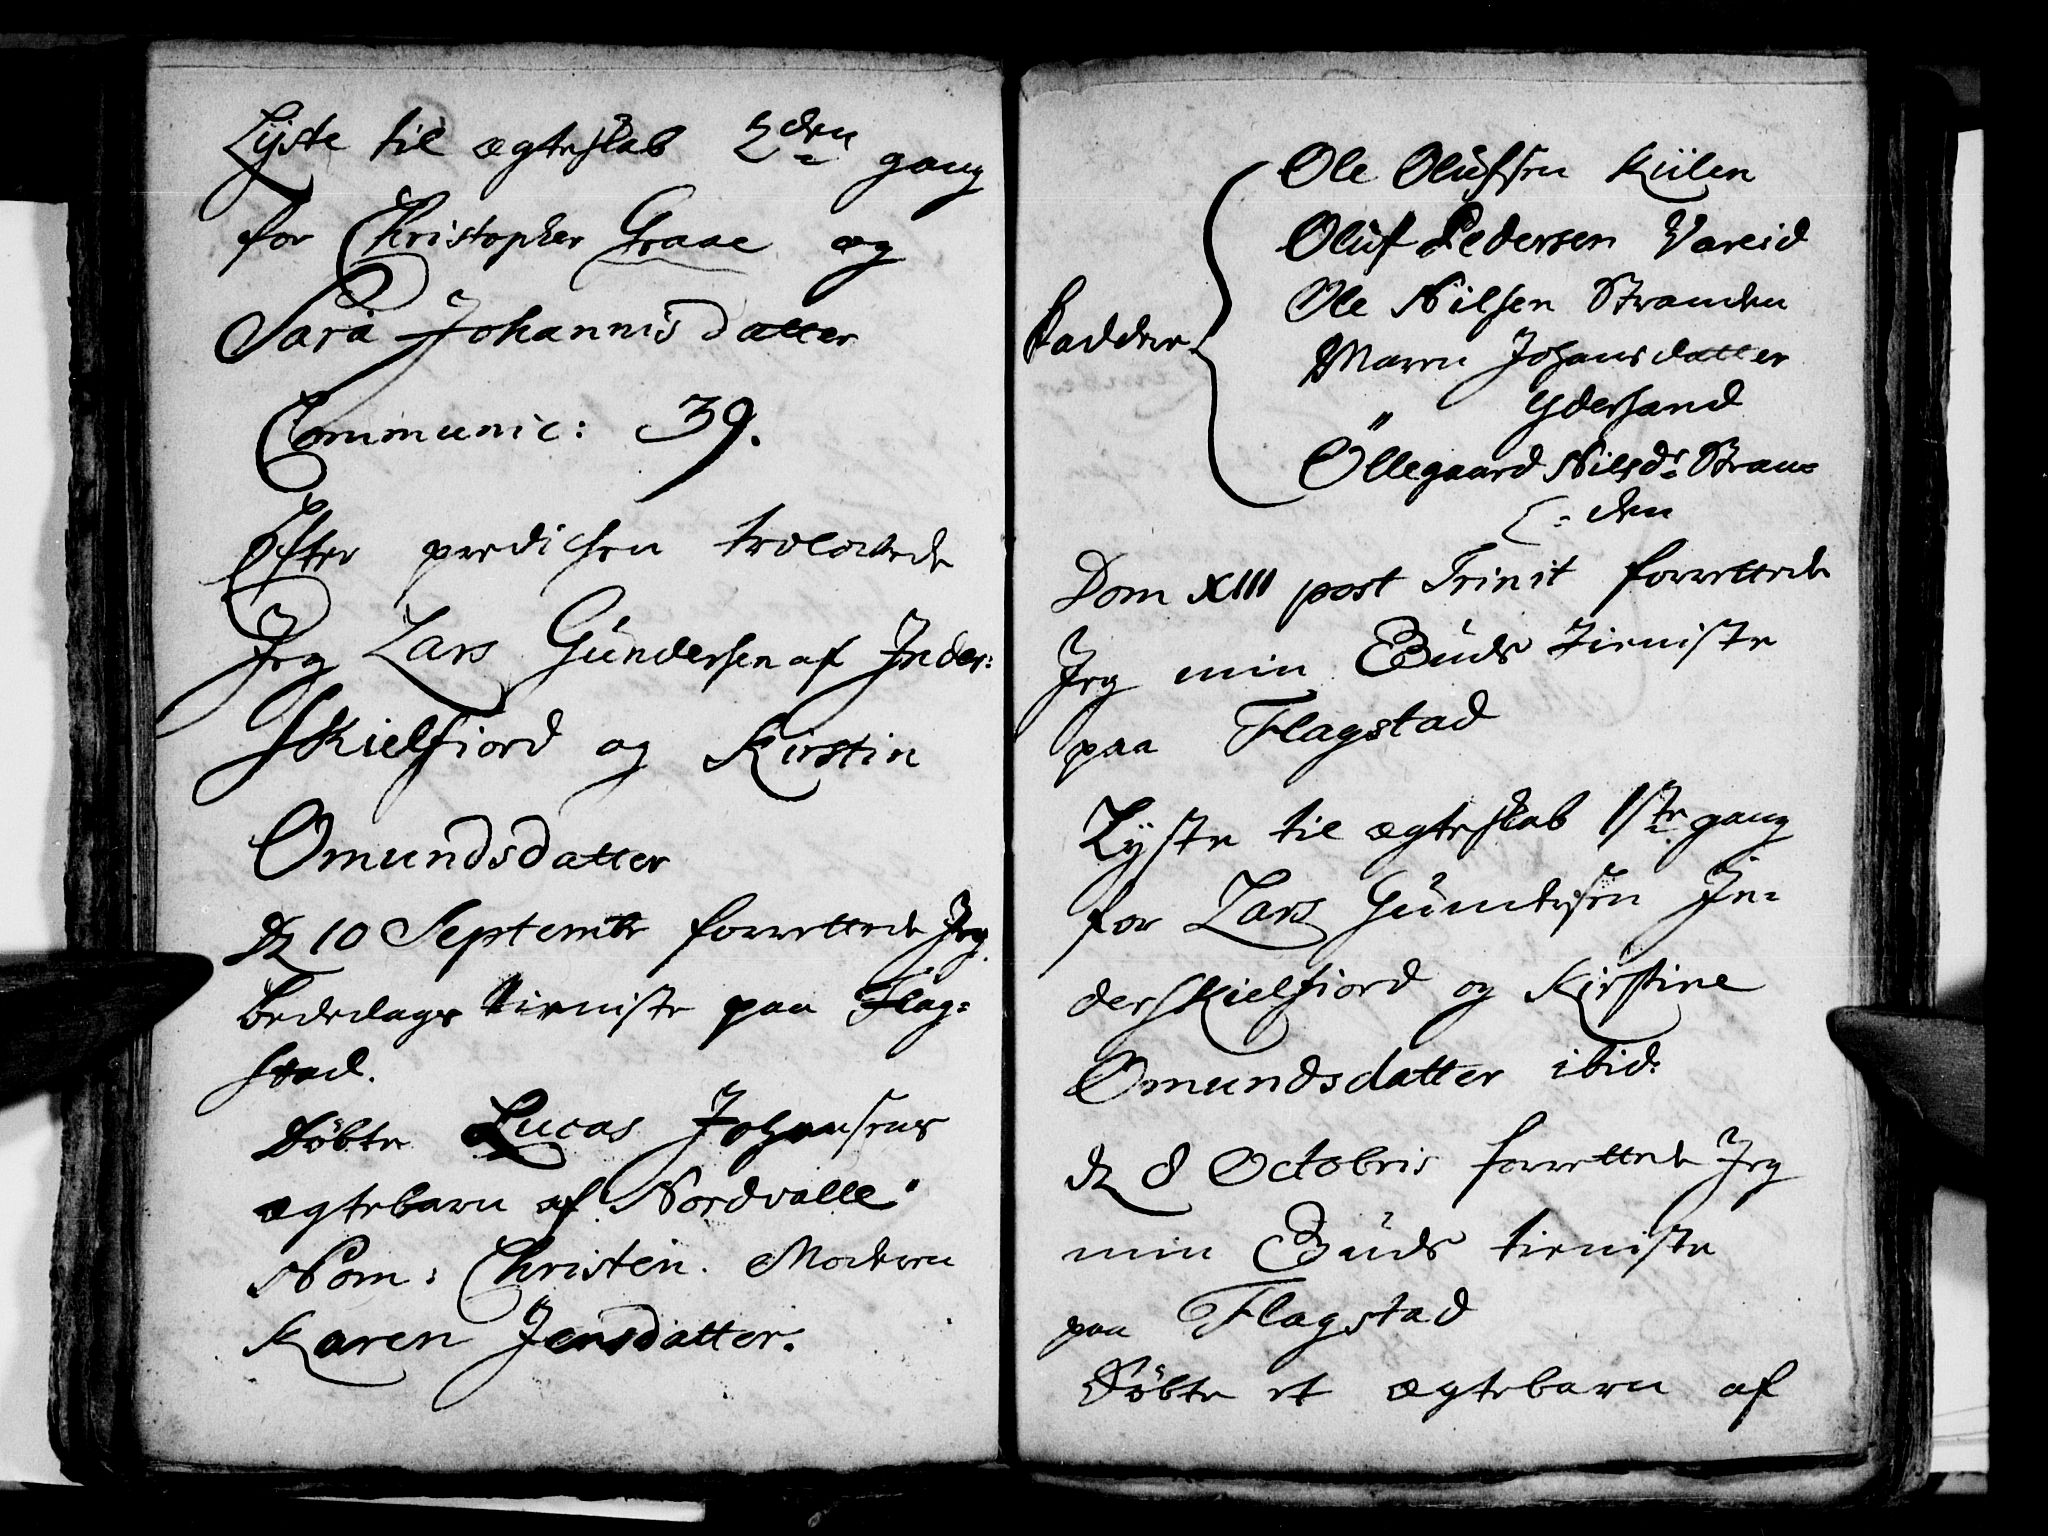 Lyste til ægteskab 2den gang
for Christopher Graae og
Sara Johannisdatter
Communic: 39.
Efter predichen trolovede
Jeg Lars Gündersen af Inder=
skielfiord og Kirstin
Omundsdatter
d 10 Septembr forrettede Jeg
bededags tieniste paa Flag=
stad.
Döbte Lucas Johansens
ægtebarn af Nordvalle
Nom: Christen. Moderen
Karen Jensdatter.
Fadder.
Ole Olüfsen Kiilen
Olüf Pedersen Vareid
Ole Nilsen Stranden
Maren Johansdatter
Ydersand
Öllegaard Nilsdr Stran=
den
Dom XIII post Trinit forrettede
Jeg min Büds tieniste
paa Flagstad
Lyste til ægteskab 1ste gang
for Lars Gündersen In=
derskielfiord og Kirstine
Omundsdatter ibid:
d 8 Octobris forrettede Jeg
min Büds tieniste
paa Flagstad
Döbte et ægtebarn af